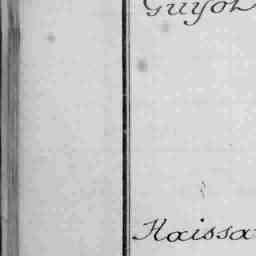 Guyot
Haissa